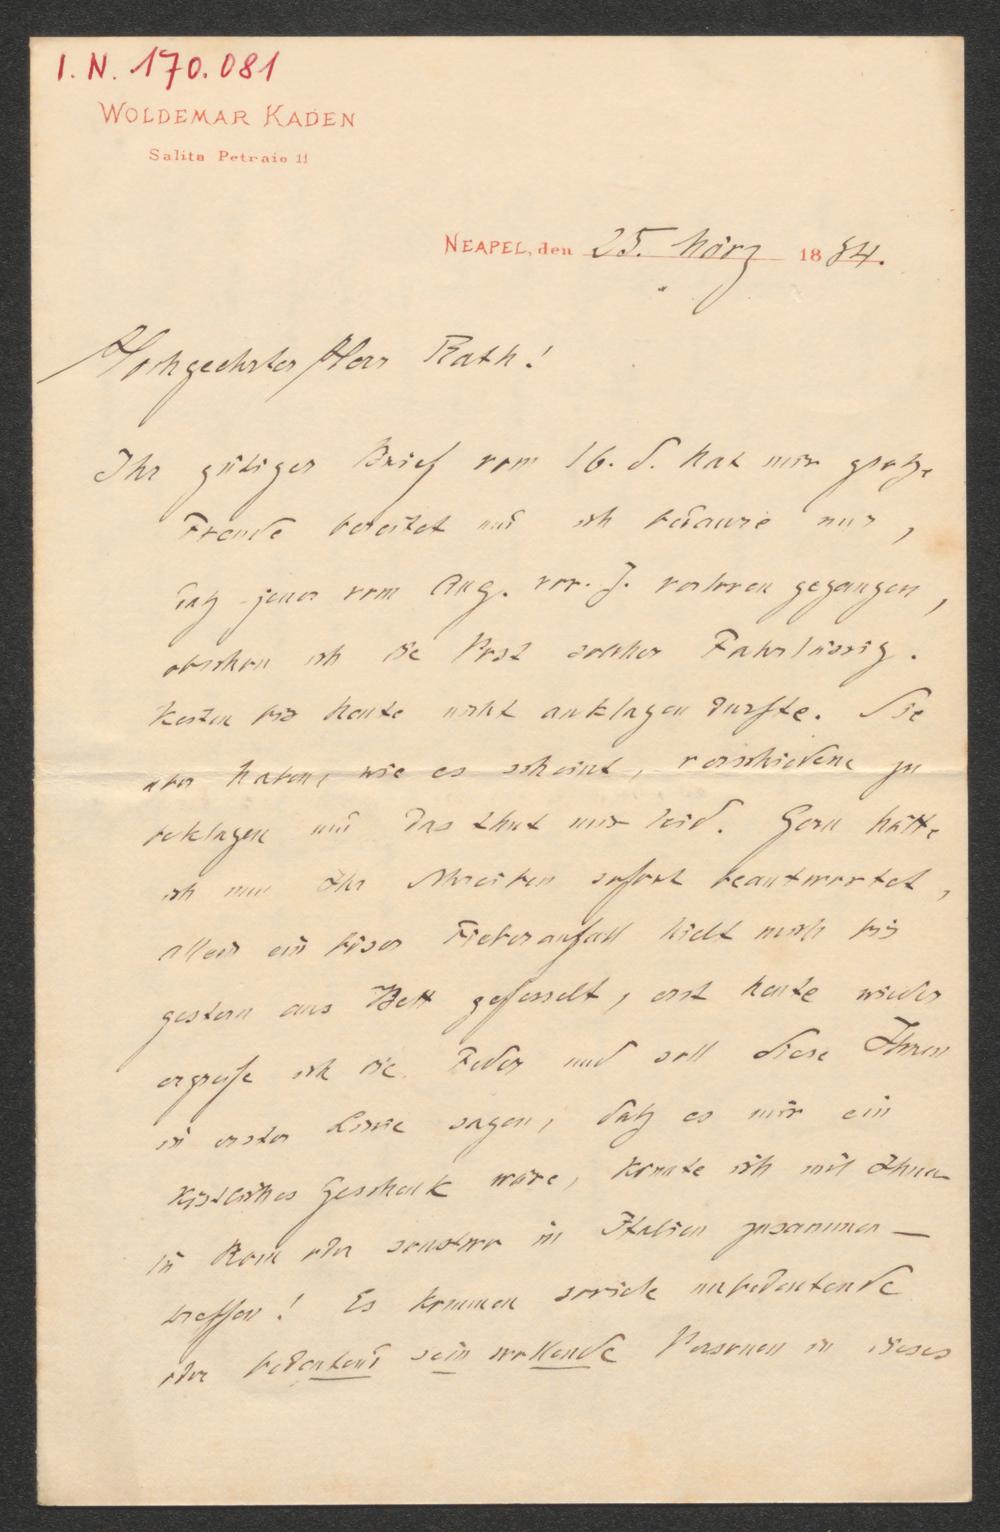 I. N. 170.081
WOLDEMAR KADEN
Salita Petraio 11
NEAPEL, den 25. März 1884.
Hochgeehrter Herr Rath!
Ihr gütiger Brief vom 16. d. hat mir große
Freude bereitet und ich bedaure nur,
daß jener vom Aug. vor. J. verloren gegangen,
obschon ich die Post solcher Fahrlässig.
keiten bis heute nicht anklagen durfte. Sie
aber haben, wie es scheint, verschiedene zu
beklagen und das thut mir leid. Gern hätte
ich nun Ihr Schreiben sofort beantwortet,
allein ein böser Fieberanfall hielt mich bis
gestern ans Bett gefesselt, erst heute wieder
ergreife ich die Feder und soll diese Ihnen
in erster Linie sagen, daß es mir ein
köstliches Geschenk wäre, könnte ich mit Ihnen
in Rom oder sonstwo in Italien zusammen-
treffen! Es kommen soviele unbedeutende
oder bedeutend sein wollende Personen in dieses